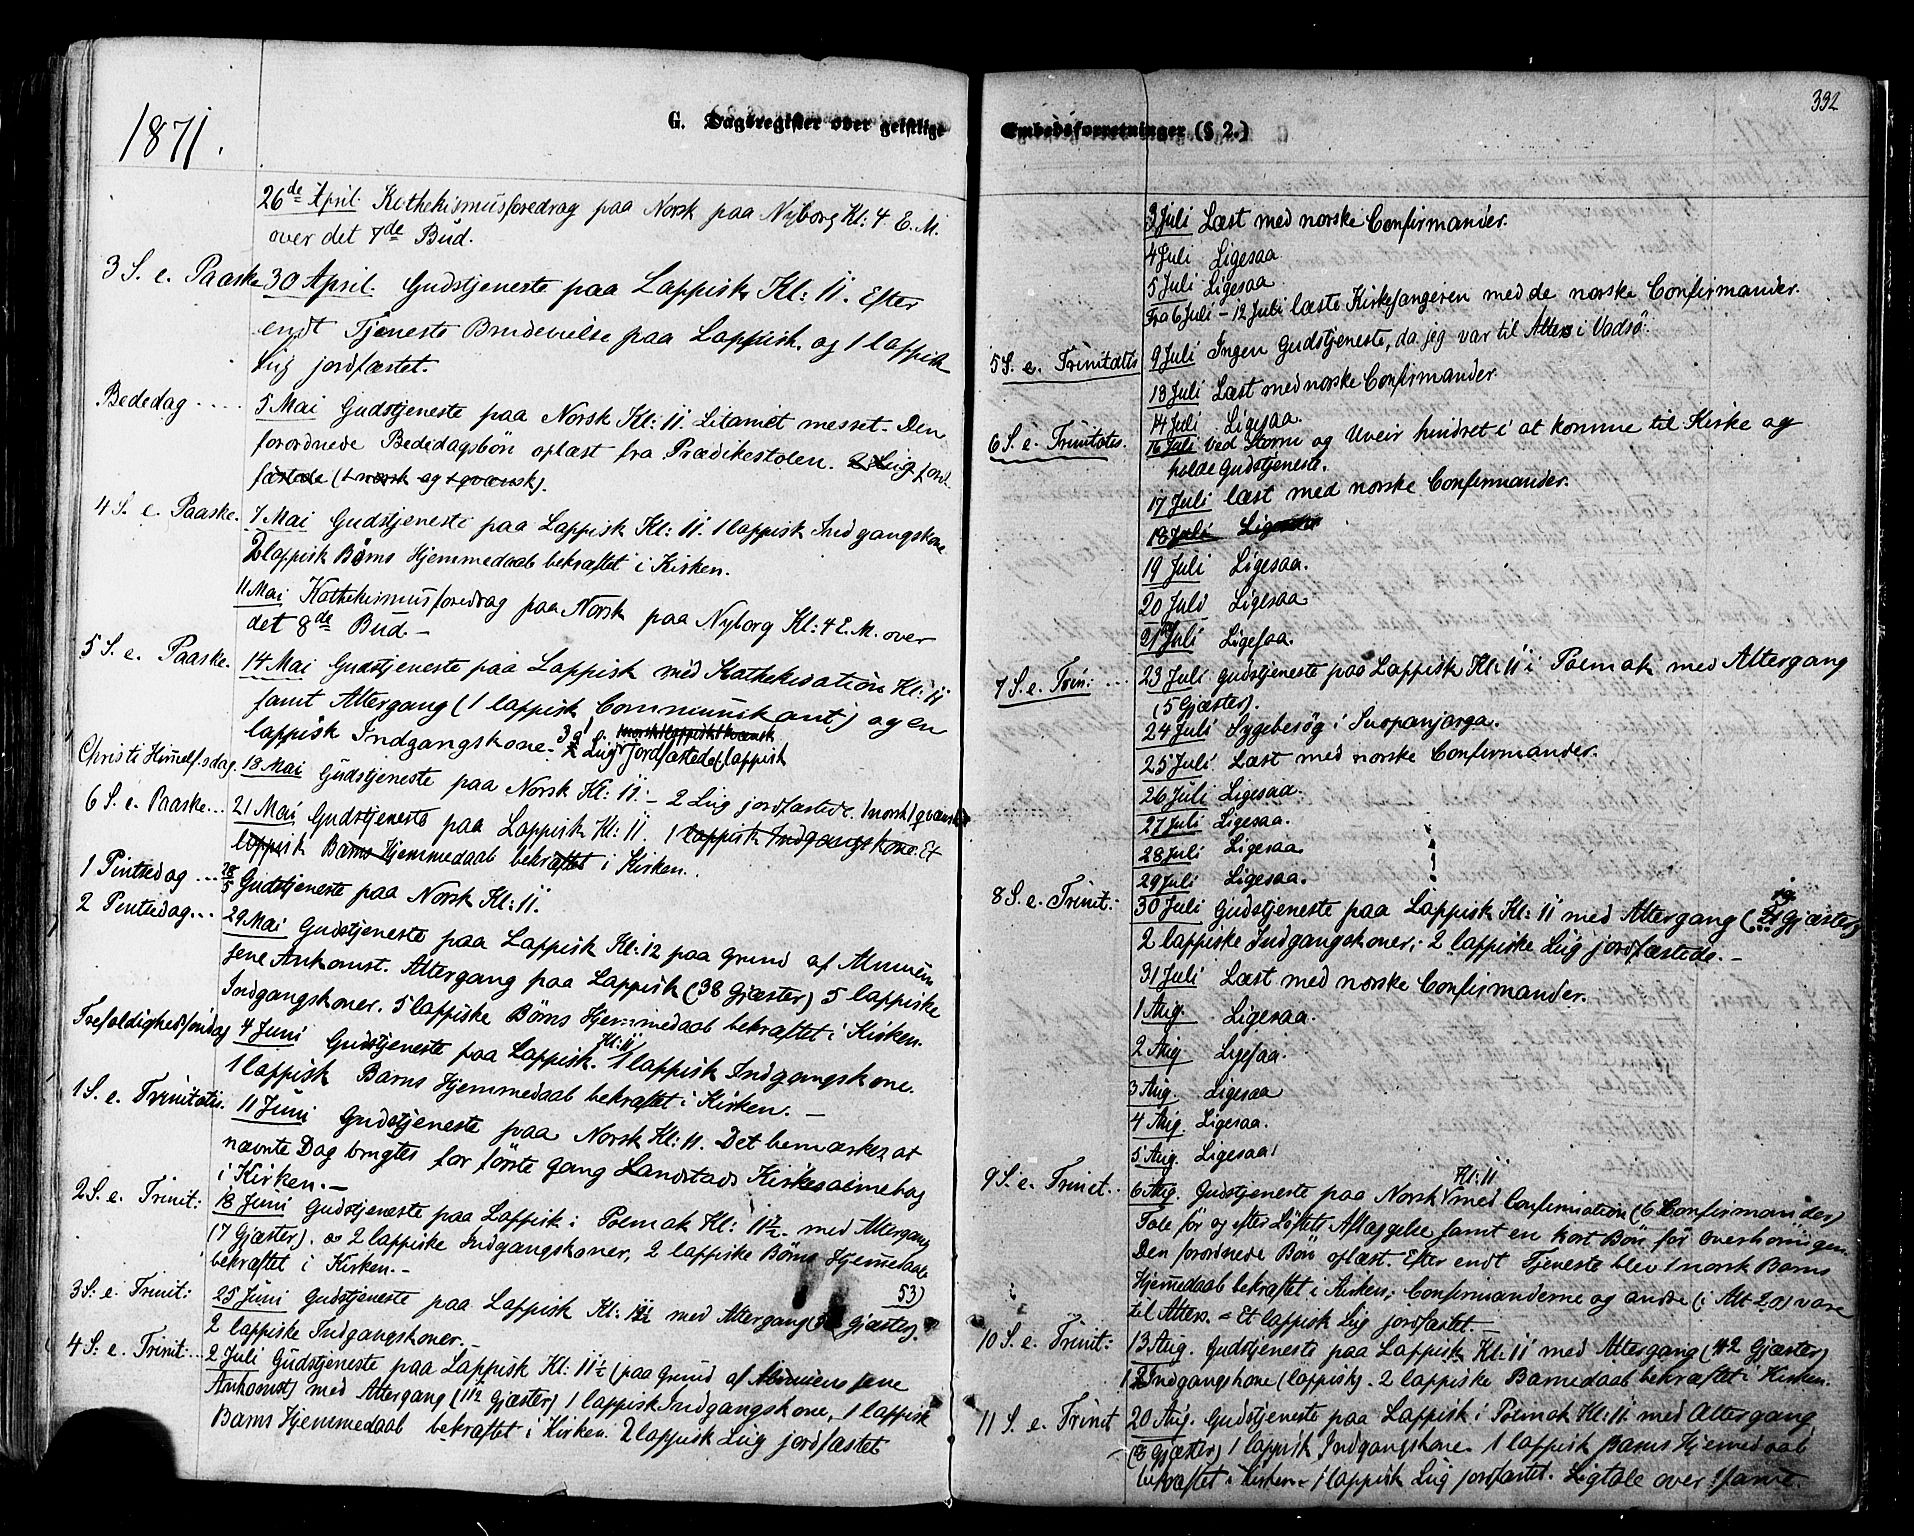 1871.
G. Dagsregister over geistlige
26de April. Kathekismusforedrag paa Norsk paa Nyborg Kl: 4 E. M.
over det 7de Bud.
3 S. e. Paaske 30 April. Gudstjeneste paa Lappisk Kl: 11. Efter
endt Tjeneste Brudevielse paa Lappisk, og 1 lappisk
Liig jordfæstet.
Bededag .... 5 Mai Gudstjeneste paa Norsk Kl: 11. Litaniet messet. Den
forordnede Bededagsbön oplæst fra Prædikestolen. 2 Liig jord-
fæstede (1 norsk og 1 qvænsk).
4 S. e. Paaske. 7 Mai Gudstjeneste paa Lappisk Kl: 11. 1 lappisk Indgangskone
2 lappisk Börns Hjemmedaab bekræftet i Kirken.
11 Mai Kathekismusforedrag paa Norsk paa Nyborg Kl: 4 E. M. over
det 8de Bud. –
5 S. e. Paaske. 14 Mai Gudstjeneste paa Lappisk med Kathekisation Kl: 11
samt Altergang (1 lappisk Communikant) og en
lappisk Indgangskone. 3 Liig jordfæstede lappisk
Christi Himmelf.dag. 18 Mai Gudstjeneste paa Norsk Kl: 11. – 2 Liig jordfæstede 1 norsk 1 qvænsk
6 S. e. Paaske... 21 Mai Gudstjeneste paa Lappisk Kl: 11. 1 lappisk Indgangskone. Et
lappisk Barns Hjemmedaab bekræftet i Kirken.
1 Pintsedag ... 28/5 Gudstjeneste paa Norsk Kl: 11.
2 Pintsedag... 29 Mai Gudstjeneste paa Lappisk Kl: 12 paa Grund af Almuen
sene Ankomst. Altergang paa Lappisk (38 Gjæster) 5 lappiske
Indgangskoner. 5 lappiske Börns Hjemmedaab bekræftet i Kirken.
Trefoldighedssöndag 4 Juni Gudstjeneste paa Lappisk. Kl: 11 1 lappisk Indgangskone.
1 lappisk Barns Hjemmedaab bekræftet i Kirken. –
1 S. e. Trinitatis. 11 Juni Gudstjeneste paa Norsk Kl: 11. Det bemærkes at
nævnte Dag brugtes for förste gang Landstads Kirkesalmebog
i Kirken. –
2 S. e. Trinit: 18 Juni Gudstjeneste paa Lappisk i Polmak Kl: 11½ med Altergang
(7 Gjæster). og 2 lappiske Indgangskoner, 2 lappiske Börns Hjemmedaab
bekræftet i Kirken. –
3 S: e. Trinit: 25 Juni Gudstjeneste paa Lappisk Kl: 11 med Altergang (53 Gjæster).
2 lappiske Indgangskoner.
4 S: e. Trinit: .. 2 Juli Gudstjeneste paa Lappisk Kl: 11½ (paa Grund af Almuens sene
Ankomst) med Altergang (11 Gjæster) 1 lappisk Indgangskone, 1 lappisk
Barns Hjemmedaab bekræftet i Kirken. 2 lappisk Liig jordfæstet
332
Embedsforretninger (§ 2.)
3 Juli Læst med norske Confirmander.
4 Juli Ligesaa
5 Juli Ligesaa
Fra 6 Juli – 12 Juli læste Kirkesangeren med de norske Confirmander.
5 S. e. Trinitatis 9 Juli Ingen Gudstjeneste, da jeg var til Alters i Vadsö.
13 Juli Læst med norske Confirmander.
14 Juli Ligesaa.
6 S. e. Trinitatis. 16 Juli Ved Storm og Uveir hindret i at komme til Kirke og
holde Gudstjeneste.
17 Juli læst med norske Confirmander.
18 Juli Ligesaa
19 Juli Ligesaa.
20 Juli Ligesaa
21 Juli Ligesaa.
7 S. e. Trin: ... 23 Juli Gudstjeneste paa Lappisk Kl: 11 i Polmak med Altergang
(5 Gjæster).
24 Juli Sygebesög i Suopanjarga.
25 Juli. Læst med norske Confirmander.
26 Juli Ligesaa.
27 Juli Ligesaa.
28 Juli Ligesaa
29 Juli Ligesaa.
8 S. e. Trinit: 30 Juli Gudstjeneste paa Lappisk Kl: 11 med Altergang (19 Gjæster)
2 lappiske Indgangskoner, 2 lappiske Liig jordfæstede. –
31 Juli Læst med norske Confirmander.
1 Aug. Ligesaa.
2 Aug Ligesaa.
3 Aug. Ligesaa
4 Aug. Ligesaa.
5 Aug. Ligesaa
9 S. e. Trinit... 6 Aug. Gudstjeneste paa Norsk Kl: 11 med Confirmation (6 Confirmander)
Tale för og efter Löftets Aflæggelse samt en kort Bön för overhöringen
Den forordnede Bön oplæst. Efter endt Tjeneste blev 1 norsk Barns
Hjemmedaab bekræftet i Kirken; Confirmanderne og andre (i Alt 20) vare
til Alters. – Et lappisk Liig jordfæstet. –
10 S. e. Trinit: 13 Aug. Gudstjeneste paa Lappisk Kl: 11 med Altergang (42 Gjæster)
1 Indgangskone (lappisk). 2 lappiske Barnedaab bekræftet i Kirken.
11 S. e. Trinit 20 Aug. Gudstjeneste paa Lappisk i Polmak Kl: 11 med Altergang
(8 Gjæster) 1 lappisk Indgangskone. 1 lappisk Barns Hjemmedaab
bekræftet i Kirken 1 lappisk Liig jordfæstet. Ligtale over samme.